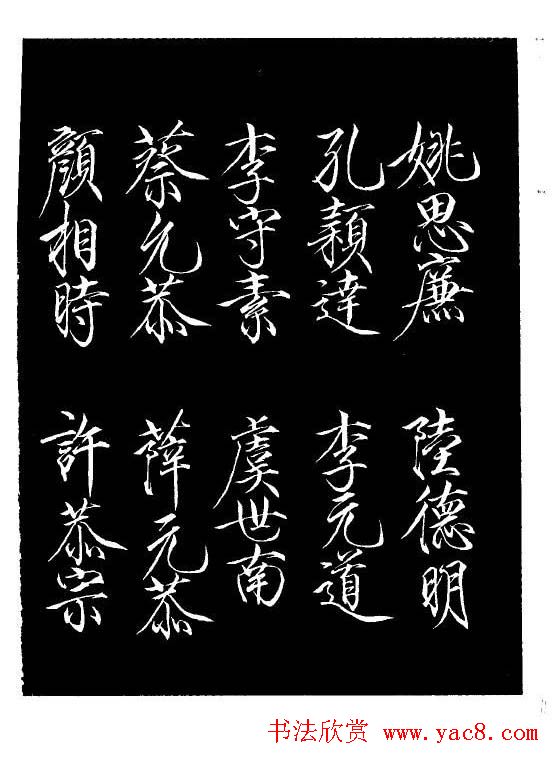 姚思廉　陸德明
孔穎達　李元道
李守素　虞世南
蔡允恭　薛元恭
顏相時　許恭宗
书法欣赏 www.yac8.com